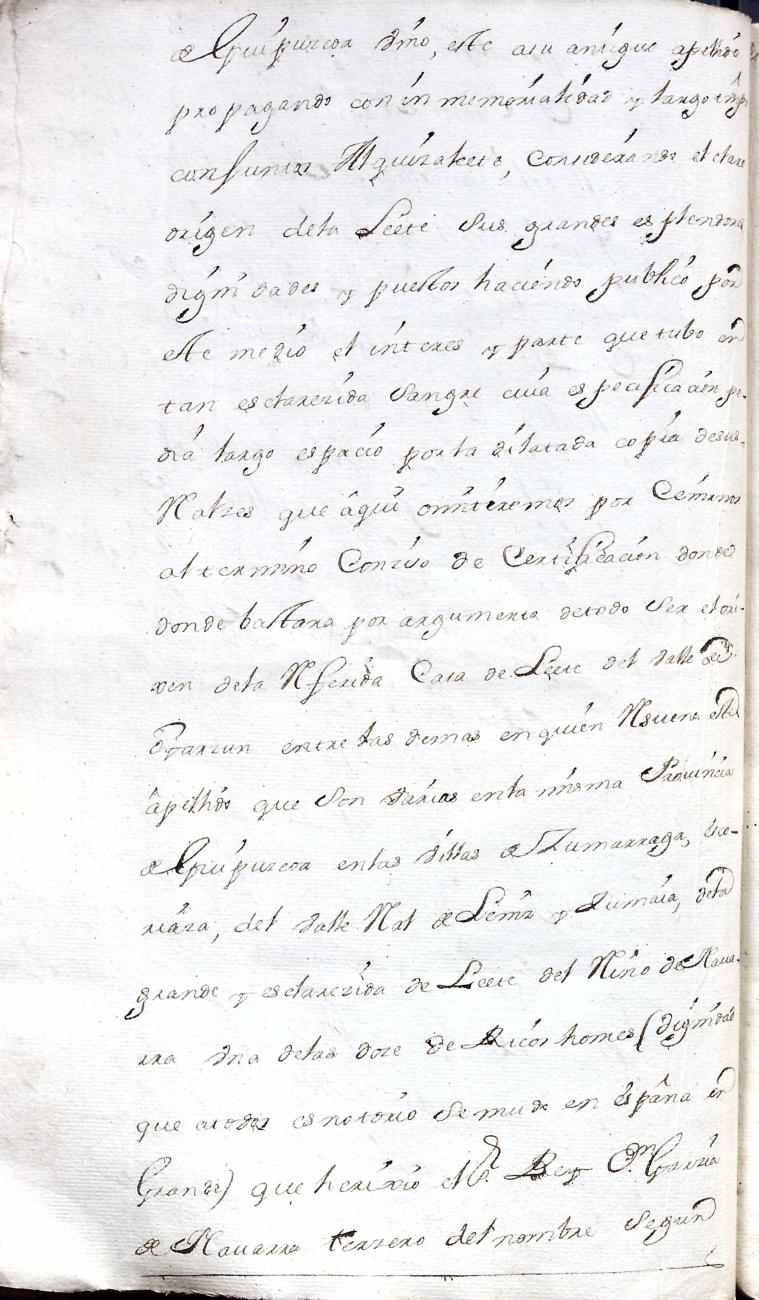 de Guipuzcoa Uno, este a su antiguo apellido
propagando con inmemorialidad y largo
consuntos Alquizalete, Considerando el claro
origen de la Leete Sus grandes esplendores
dignidades y puestos haciendo publico por
este medio el interes y parte que tubo en
tan esclarezida Sangre cuia especificacion pe-
dia largo espacio por la dilatada copia de sus
Nalzes que aqui omiteremos por Ceñirnos
al termino Conziso de Certificacion donde
donde bastara por argumento de todo Ser el ori-
xen de la Rferida Casa de Leete del Valle de
Oyarzun entre las demas en quien Rsuena este
apellido que Son Varias en la misma Provincia
de Guipuzcoa en las Villas de Zumarraga, Esco-
riaza, del Valle Ral de Leniz y Zumaia, de la
grande y esclarezida de Leete del Rino de Nava-
rra Una de las doze de Ricos homes (dignidad
que a todos es notorio Se mudo en españa en
Grande) que herixio el Sr. Rey Dn. Garzia
de Navarra terzero del nombre Segun